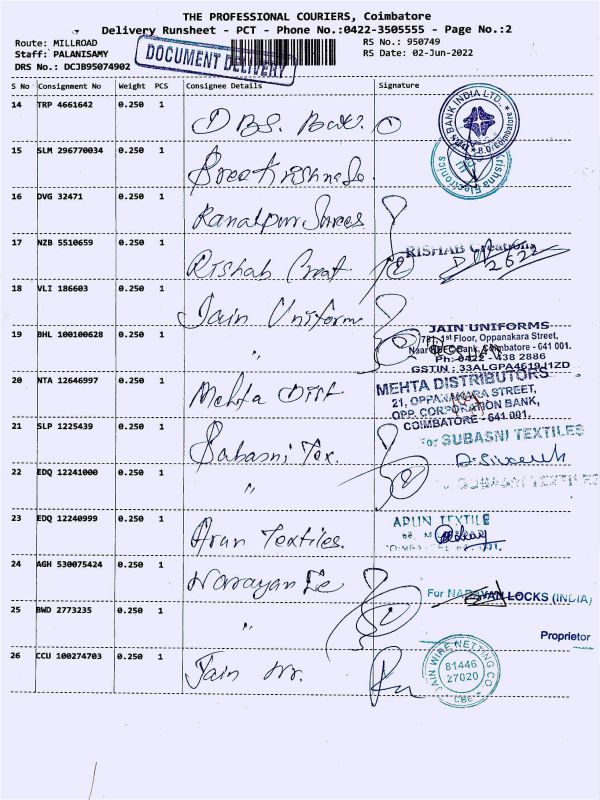 THE PROFESSIONAL COURIERS, Coimbatore
Delivery Runsheet - PCT - Phone No.:0422-3505555 - Page No.:2
Route: MILLROAD
RS No.: 950749
Staff: PALANISAMY
RS Date: 02-Jun-2022
DRS No.: DCJB95074902
DOCUMENT DELIVERY
S No Consignment No Weight PCS Consignee Details Signature
14 TRP 4661642 0.250 1 DBS. Bank.
BANK INDIA LTD.
15 SLM 296770034 0.250 1 Sree Krishna
Krishna Electronics
16 DVG 32471 0.250 1
17 NZB 5510659 0.250 1 Rishab Creat.
RISHAB Creations
2622
18 VLI 186603 0.250 1 Jain Uniform
19 BHL 100100628 0.250 1 "
JAIN UNIFORMS
781, 1st Floor, Oppanakara Street,
Near Bank, Coimbatore - 641 001.
Ph: 0422 - 438 2886
GSTIN : 33ALGPA4619H1ZD
20 NTA 12646997 0.250 1 Mehta Dist
MEHTA DISTRIBUTORS
21, OPPANAKARA STREET,
OPP. CORPORATION BANK,
COIMBATORE - 641 001.
21 SLP 1225439 0.250 1 Subasni Tex.
For SUBASNI TEXTILES
22 EDQ 12241000 0.250 1 "
SUBASNI TEXTILES
23 EDQ 12240999 0.250 1 Arun Textiles.
ARUN TEXTILE
24 AGH 530075424 0.250 1 Narayan
For NARAYAN LOCKS (INDIA)
25 BWD 2773235 0.250 1 "
Proprietor
26 CCU 100274703 0.250 1 Jain Wr.
JAIN WIRE NETTING CO
81446
27020
CBE